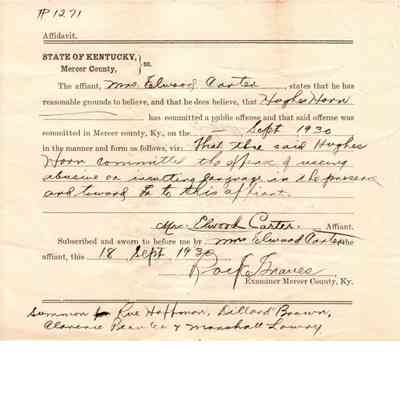 # 1271
Affidavit.
STATE OF KENTUCKY,
Mercer County, } ss.
The affiant, Mrs. Elwood Carter, states that he has
reasonable grounds to believe, and that he does believe, that Hughes Horn
has committed a public offense and that said offense was
committed in Mercer county, Ky., on the — Sept 1930
in the manner and form as follows, viz: That the said Hughes
Horn committed the offence of useing
abusive or insulting language in the presence
and toward to this affiant.
Mrs. Elwood Carter. Affiant.
Subscribed and sworn to before me by Mrs Elwood Carter the
affiant, this 18 Sept 1930
Graves
Examiner Mercer County, Ky.
Summon for Eve Hoffman, Dillard Brown,
Clarence & Marshall Lowry